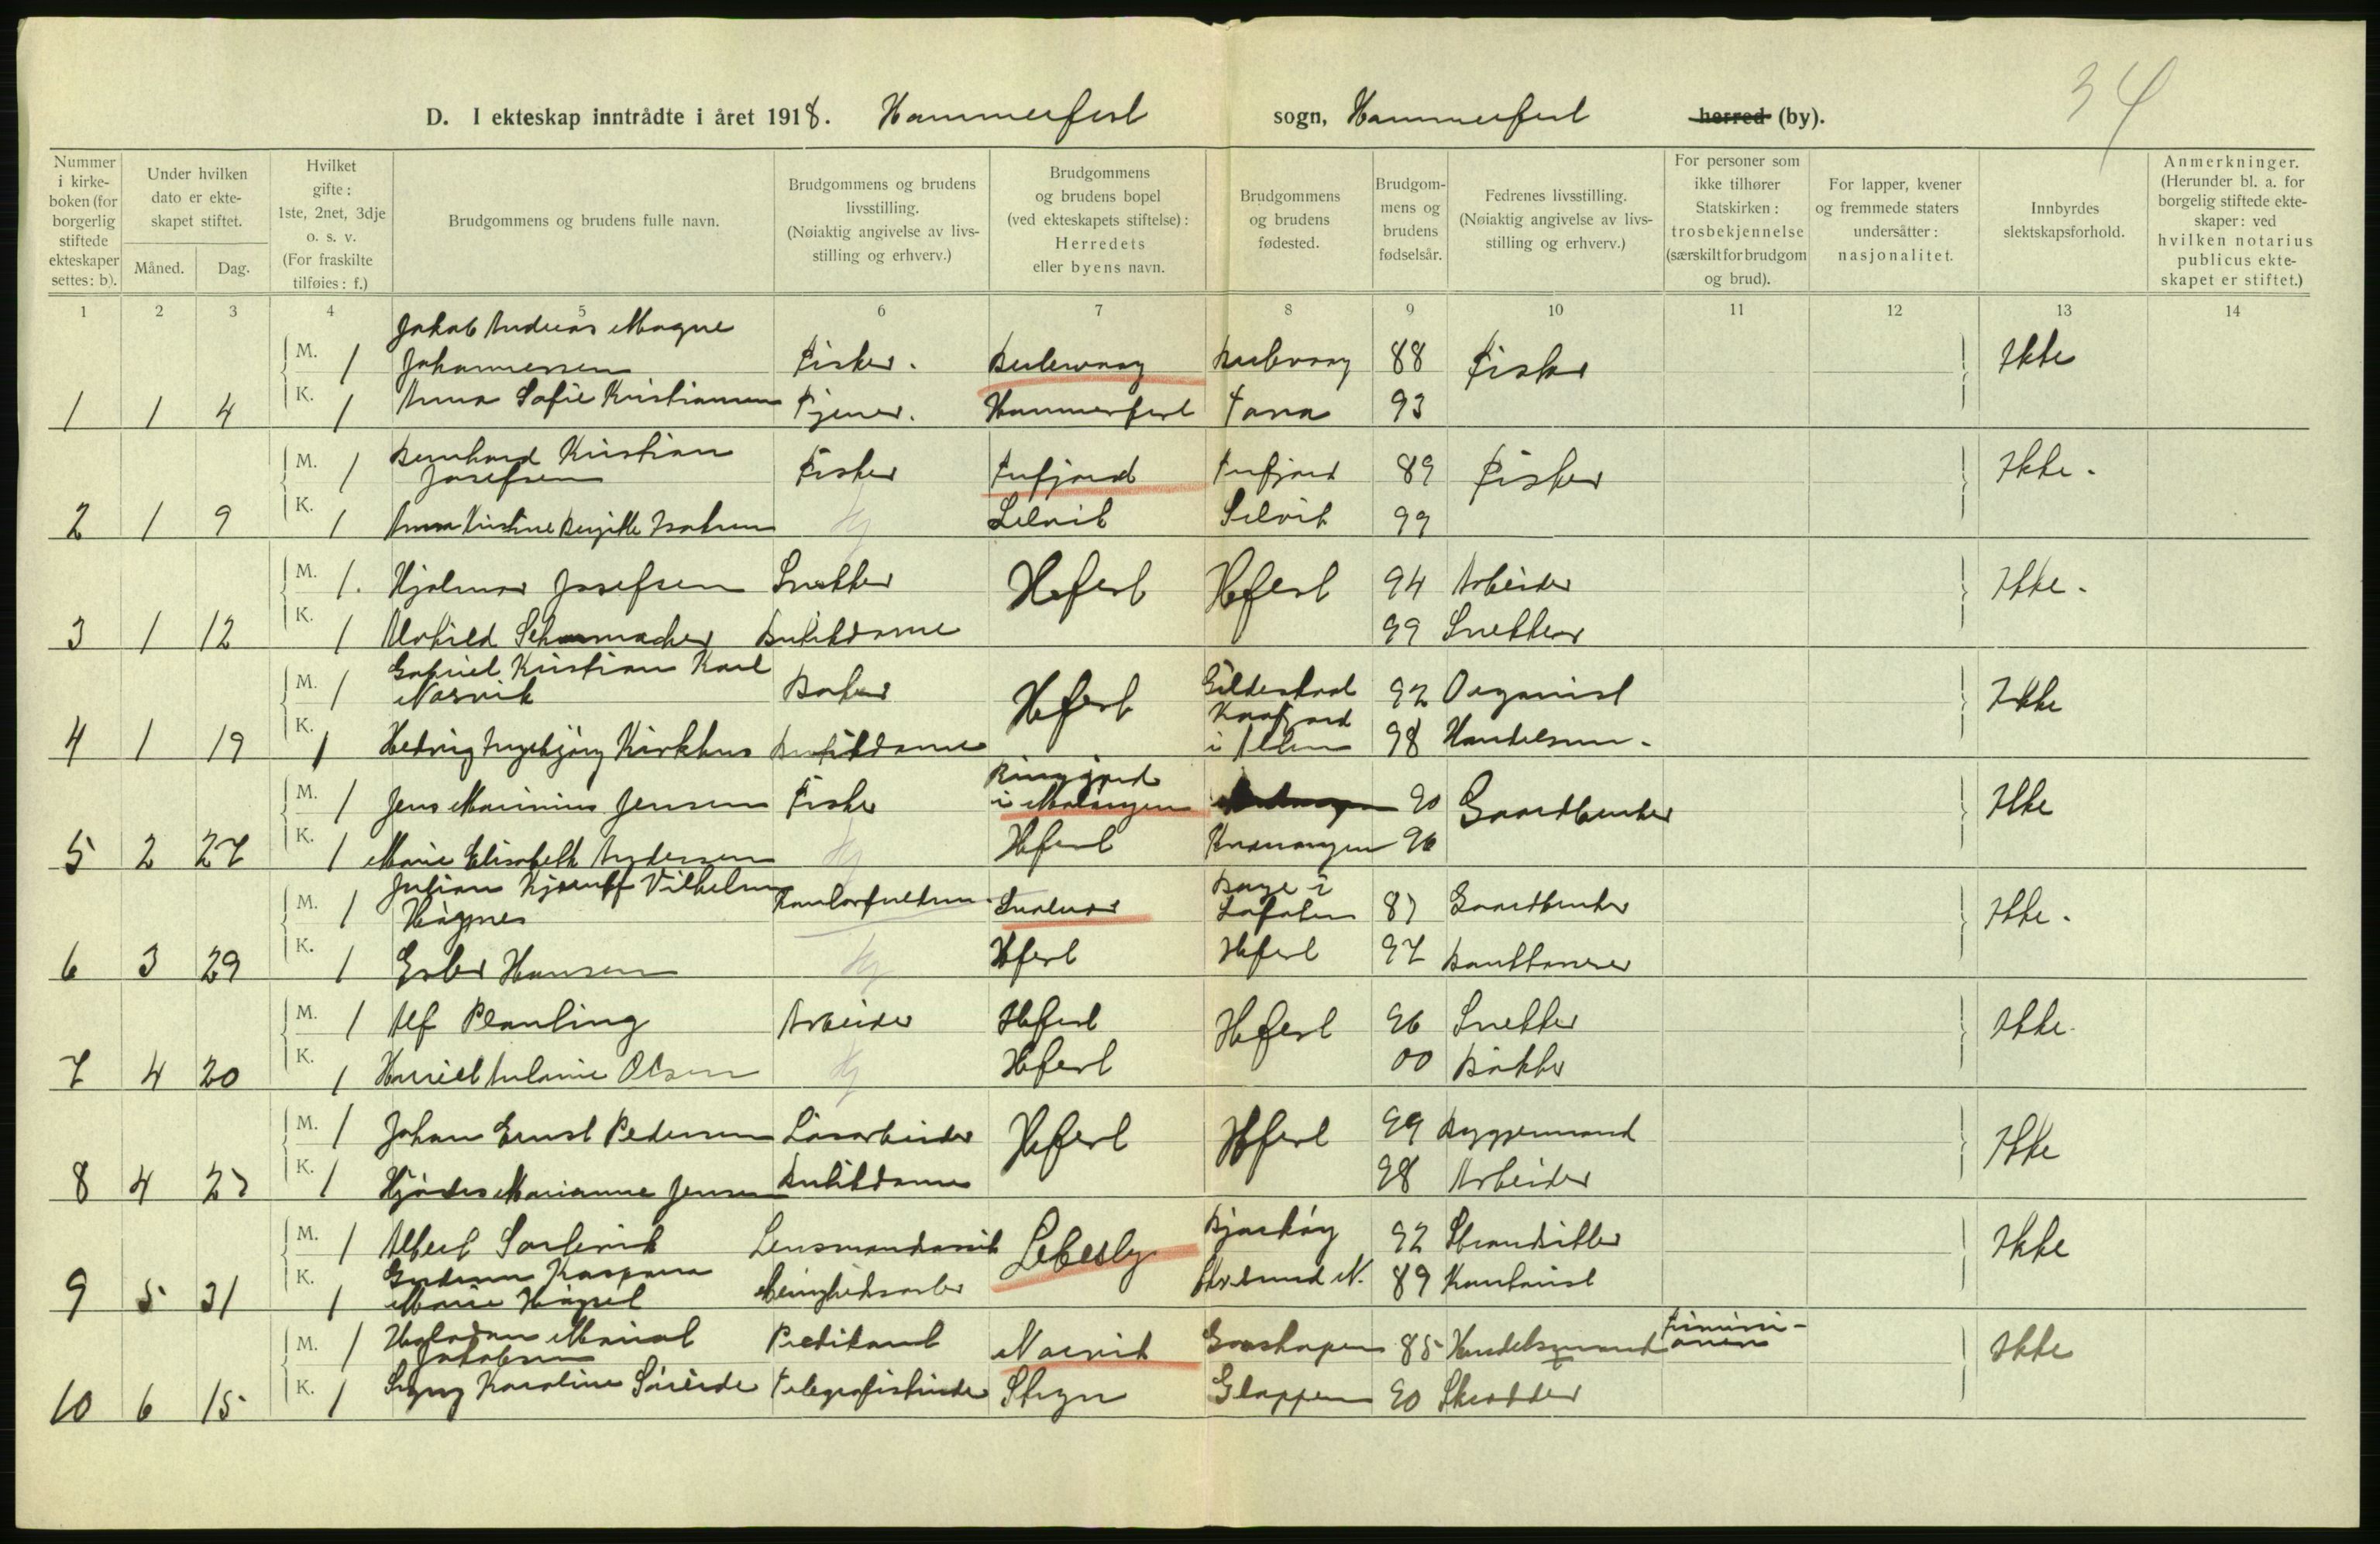 34
D. I ekteskap inntrådte i året 1918. Hammerfest sogn, Hammerfest herred (by).
Nummer i kirkeboken (for borgerlig stiftede ekteskaper settes: b).
Under hvilken dato er ekteskapet stiftet.
Måned. Dag.
Hvilket gifte: 1ste, 2net, 3dje o. s. v. (For fraskilte tilføies: f.)
Brudgommens og brudens fulle navn.
Brudgommens og brudens livsstilling. (Nøiaktig angivelse av livsstilling og erhverv.)
Brudgommens og brudens bopel (ved ekteskapets stiftelse): Herredets eller byens navn.
Brudgommens og brudens fødested.
Brudgommens og brudens fødselsår.
Fedrenes livsstilling. (Nøiaktig angivelse av livsstilling og erhverv.)
For personer som ikke tilhører Statskirken: trosbekjennelse (særskilt for brudgom og brud).
For lapper, kvener og fremmede staters undersåtter: nasjonalitet.
Innbyrdes slektskapsforhold.
Anmerkninger. (Herunder bl. a. for borgelig stiftede ekteskaper: ved hvilken notarius publicus ekteskapet er stiftet.)
1 2 3 4 5 6 7 8 9 10 11 12 13 14
Jakob Andreas Magne
M. 1 Johannessen Fisker. Berlevaag Berlevaag 88 Fisker Ikke
1 1 4 K. 1 Anna Sofie Kristiansen Tjener. Hammerfest Tana 93
M. 1 Bernhard Kristian
Josefsen Fisker Tufjord Tufjord 89 Fisker Ikke.
2 1 9 K. 1 Anna Kristine Bergitte Isaksen Selvik Selvik 99
M. 1. Hjalmar Josefsen Snekker Hfest Hfest 94 Arbeider Ikke.
3 1 12 K. 1 Alvhild Schumacher Butikdame 99 Snekker
Gabriel Kristian Karl
M. 1 Narvik Baker Hfest Gildeskaal 92 Organist Ikke
4 1 19 K. 1 Hedvig Ingebjørg Kirkhus Butikdame Kaafjord i Alten 98 Handelsm.
M. 1 Jens Marinius Jensen Fisker i Malangen 90 Gaardbruker Ikke
5 2 27 K. 1 Marie Elisabeth Andersen Hfest Kvænangen 96
Julian Vilhelm
M. 1 Svolvær i Lofoten 87 Gaardbruker Ikke.
6 3 29 K. 1 Ester Hansen Hfest Hfest 97 Bankkasserer
M. 1 Alf Planting Arbeider Hfest Hfest 96 Snekker Ikke.
7 4 20 K. 1 Harriet Antonie Olsen Hfest 00 Bøkker
M. 1 Johan Ernst Pedersen Løsarbeider Hfest Hfest 99 Byggemand Ikke
8 4 27 K. 1 Hjørdis Marianne Jensen Butikdame 98 Arbeider
M. 1 Albert Lensmandassist Lebesby 92 Strandsitter Ikke
9 5 31 K. 1 Gudrun Kaspara
Marie Menighetssøster N. 89
M. 1 Jakobsen Predikant Narvik 85 Handelsmand Ikke
10 6 15 K. 1 Signy Karoline Telegrafistinde Stryn Gloppen 90 Skrædder